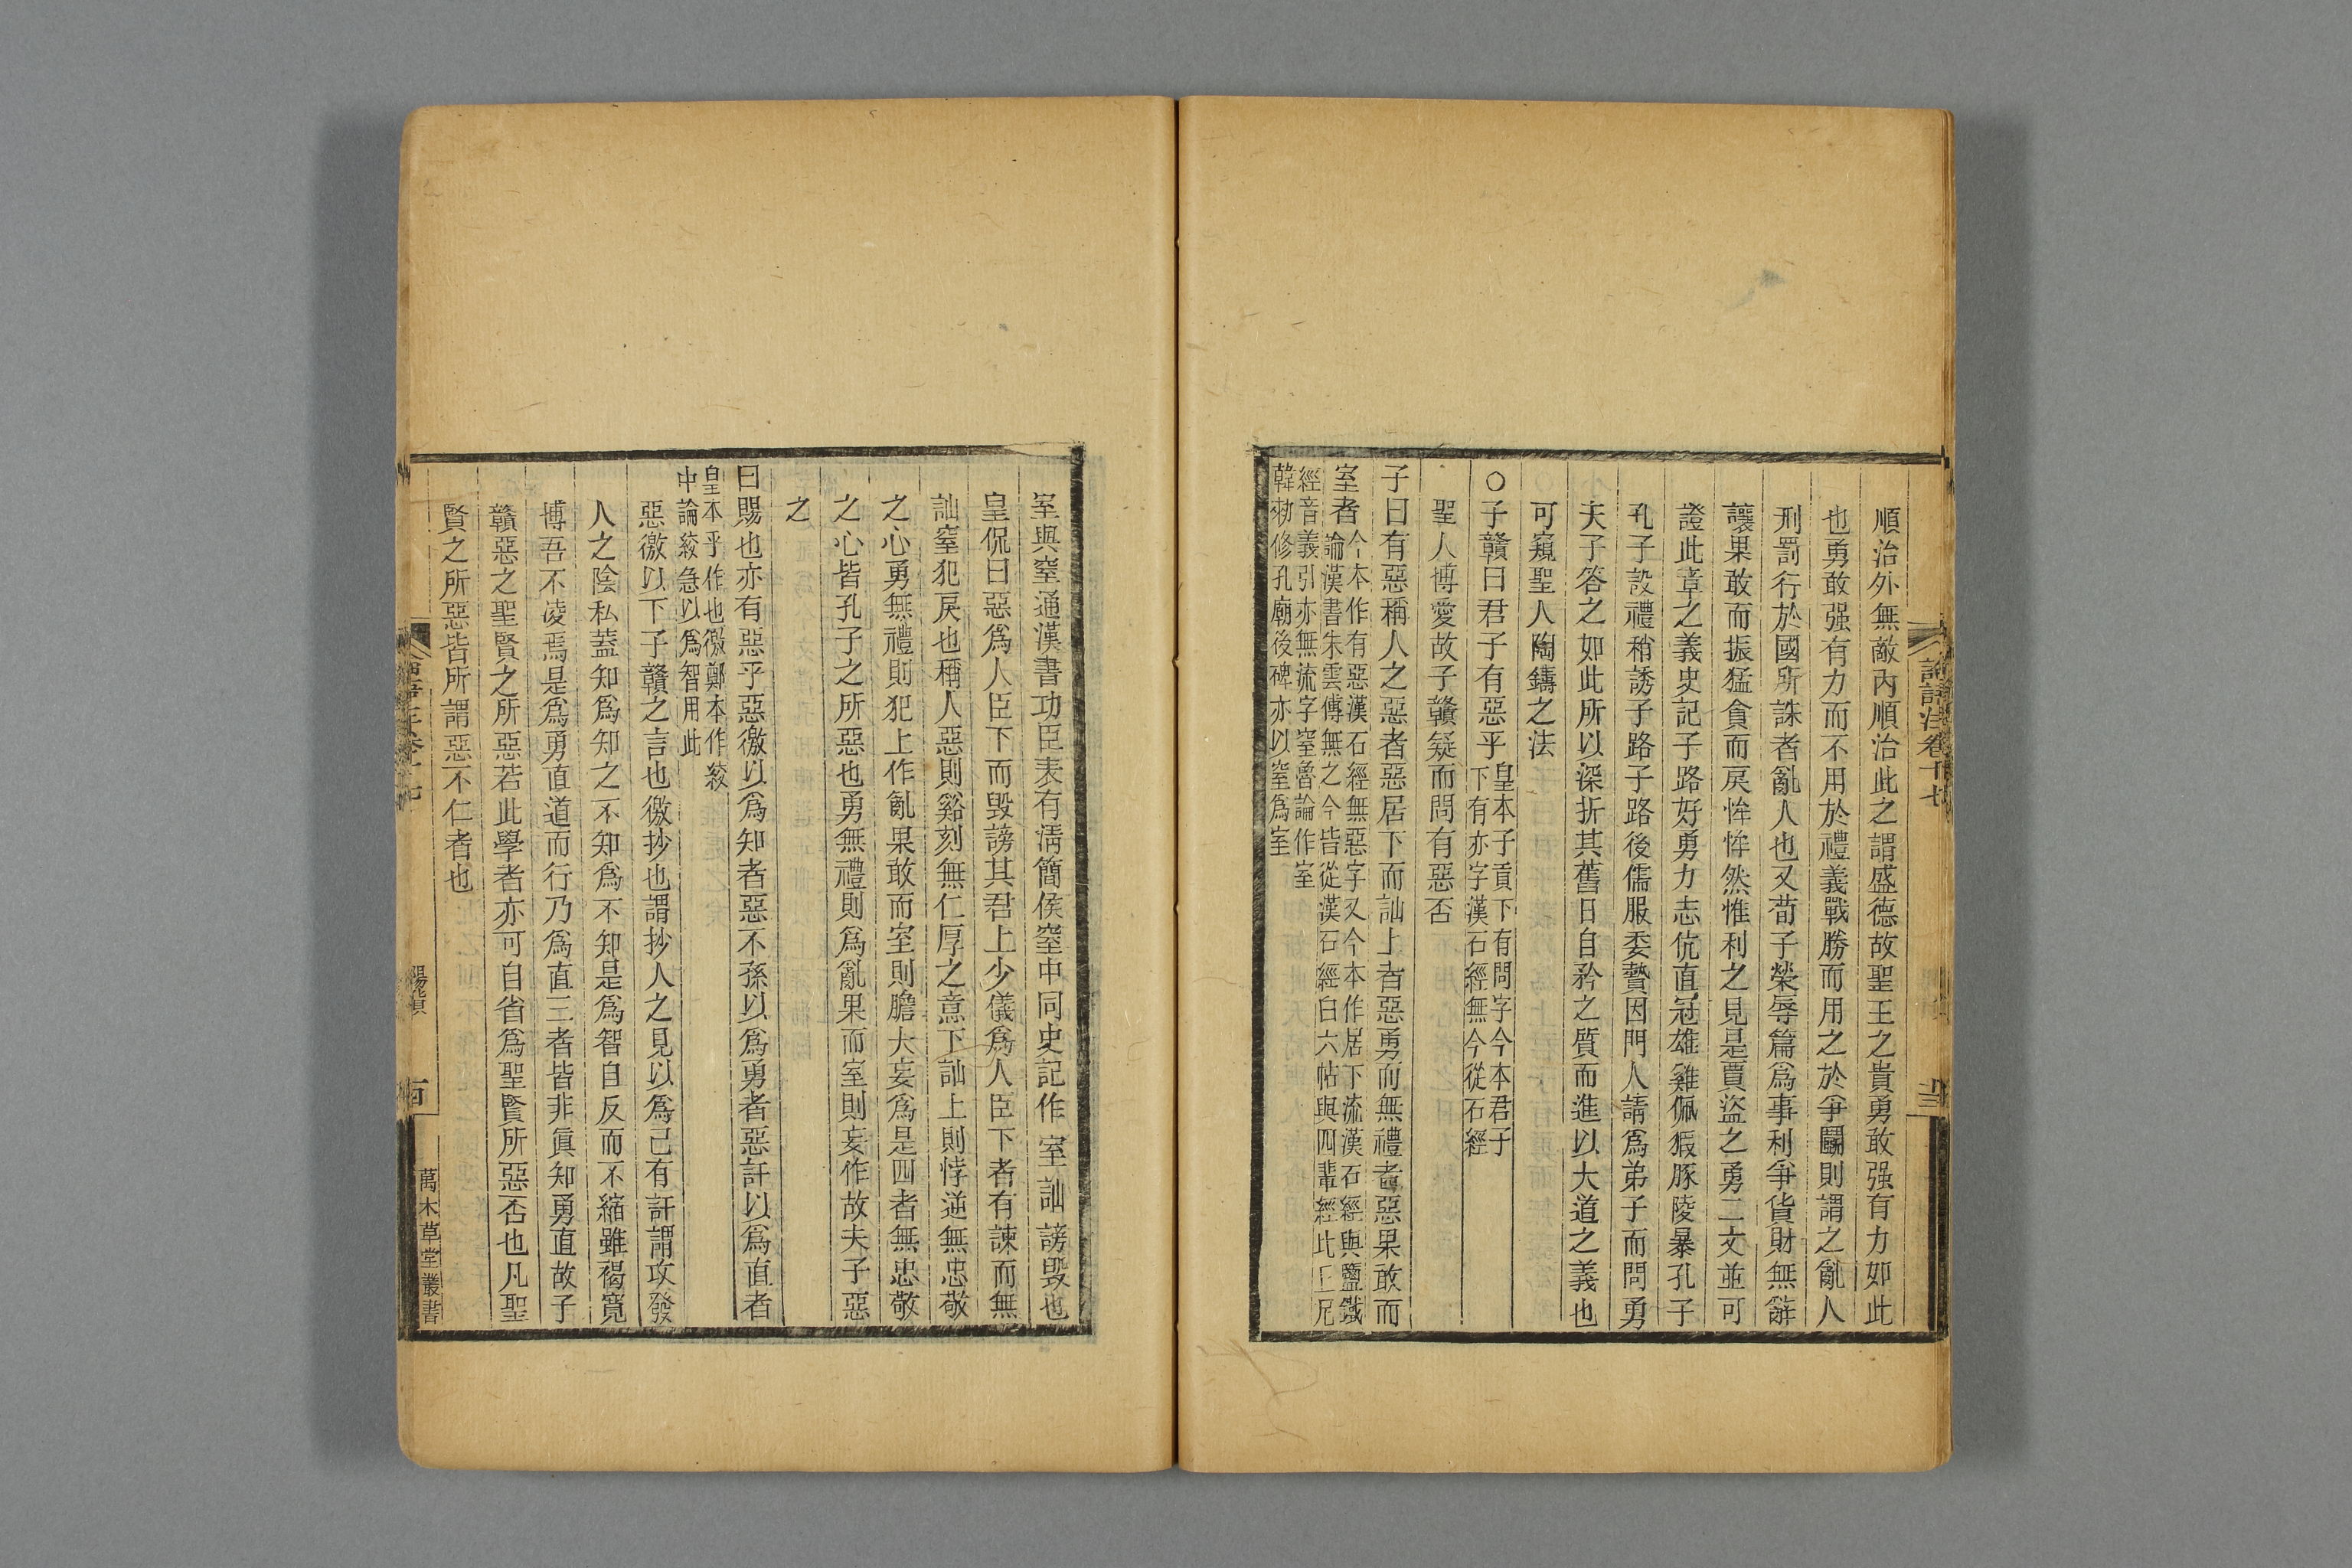 順治外無敵內順治此之謂盛德故聖王之貴勇敢强有力如此
也勇敢强有力而不用於禮義戰勝而用之於爭鬭則謂之亂人
刑罰行於國所誅者亂人也又荀子榮辱篇爲事利爭貨財無辭
讓果敢而振猛貪而戾恈恈然惟利之見是賈盜之勇二文並可
證此章之義史記子路好勇力志伉直冠雄雞佩豭豚陵暴孔子
孔子設禮稍誘子路子路後儒服委贄因門人請爲弟子而問勇
夫子答之如此所以深折其舊日自矜之質而進以大道之義也
可窺聖人陶鑄之法
○子贛曰君子有惡乎皇本子貢下有問字今本君子
下有亦字漢石經無今從石經
聖人博愛故子贛疑而問有惡否
子曰有惡稱人之惡者惡居下而訕上者惡勇而無禮者惡果敢而
窒者今本作有惡漢石經無惡字又今本作居下流漢石經與鹽鐵
論漢書朱雲傳無之今皆從漢石經白六帖與四輩經此丘尼
經音義引亦無流字窒魯論作室
韓勑修孔廟後碑亦以窒爲室
論語注卷十七
室與窒通漢書功臣表有淸簡侯窒中同史記作室訕謗毀也
皇侃曰惡爲人臣下而毀謗其君上少儀爲人臣下者有諫而無
訕窒犯戾也稱人惡則谿刻無仁厚之意下訕上則悖逆無忠敬
之心勇無禮則犯上作亂果敢而窒則膽大妄爲是四者無忠敬
之心皆孔子之所惡也勇無禮則爲亂果而窒則妄作故夫子惡
之
曰賜也亦有惡乎惡徼以爲知者惡不孫以爲勇者惡訐以爲直者
皇本乎作也徼鄭本作絞
中論絞急以爲智用此
惡徼以下子贛之言也徼抄也謂抄人之見以爲己有訐謂攻發
人之陰私蓋知爲知之不知爲不知是爲智自反而不縮雖褐寬
博吾不凌焉是爲勇直道而行乃爲直三者皆非眞知勇直故子
贛惡之聖賢之所惡若此學者亦可自省爲聖賢所惡否也凡聖
賢之所惡皆所謂惡不仁者也
陽貨
萬木草堂叢書